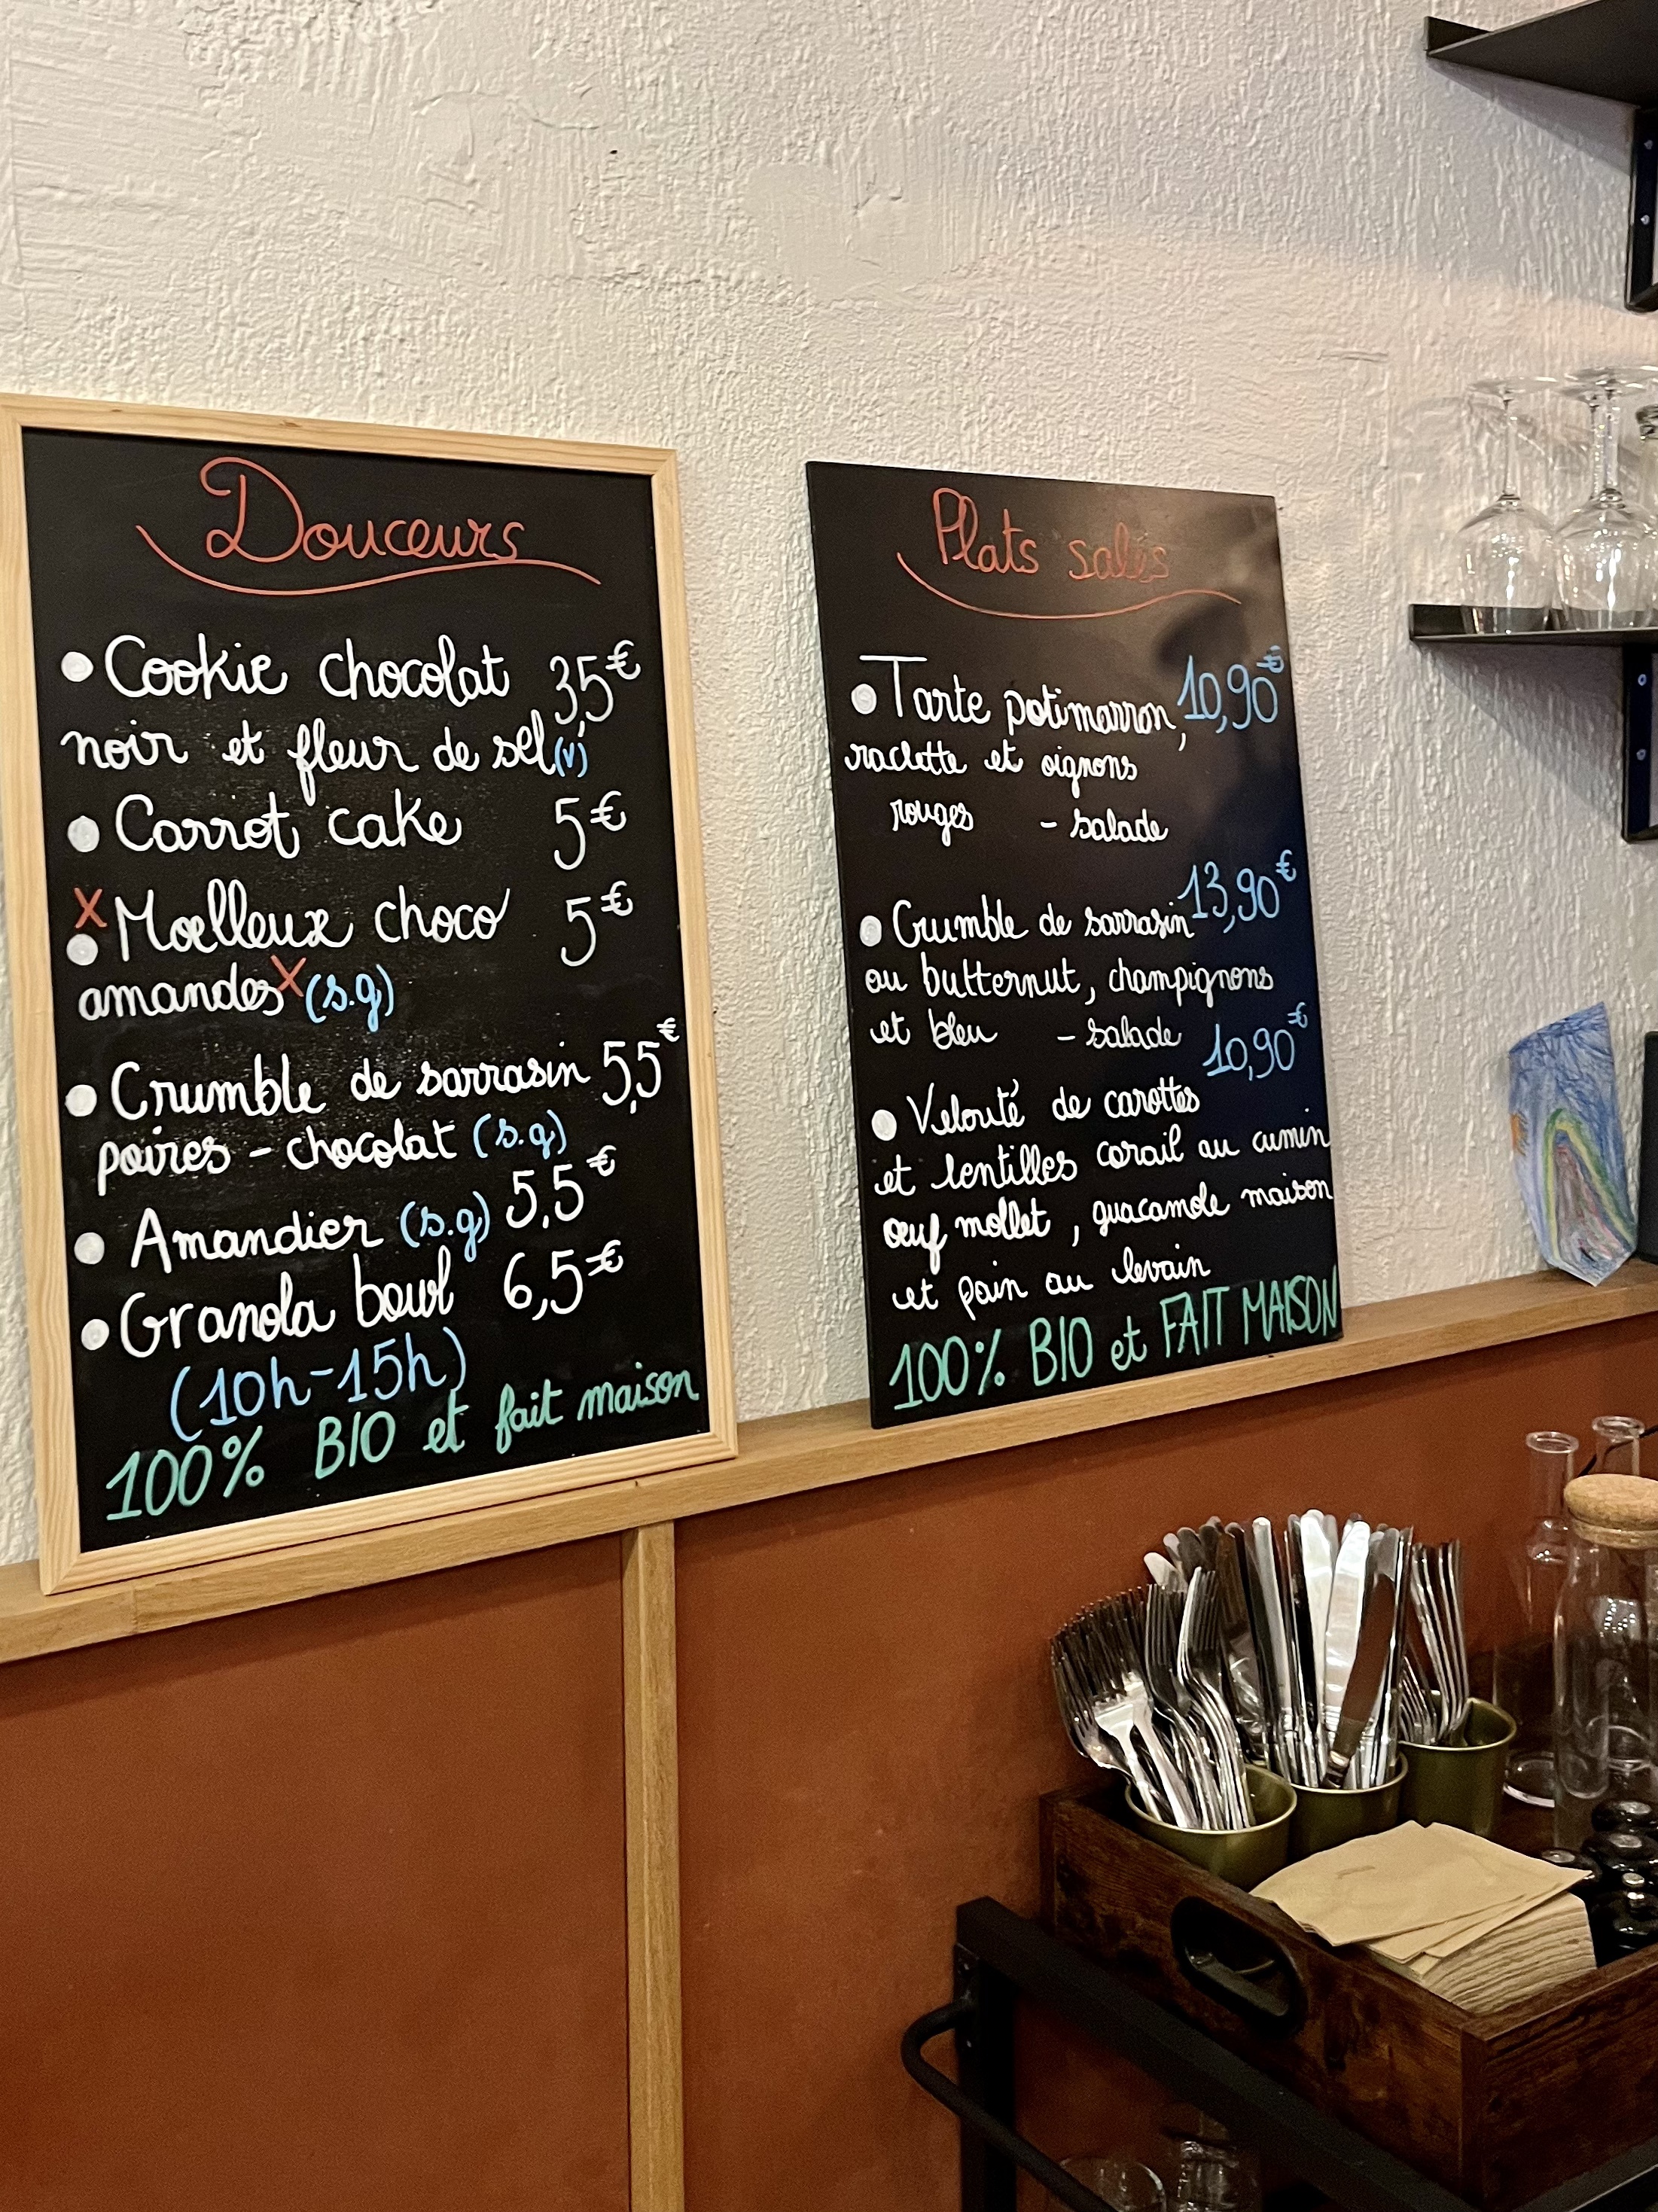 Douceurs
• Cookie chocolat 3,5€
noir et fleur de sel (v)
• Carrot cake 5€
x • Moelleux choco 5€
amandes x (s.g)
• Crumble de sarrasin 5,5€
poires - chocolat (s.g)
• Amandier (s.g) 5,5€
• Granola bowl 6,5€
(10h-15h)
100% BIO et fait maison
Plats salés
• Tarte potimarron, 10,90€
raclette et oignons
rouges - salade
• Crumble de sarrasin 13,90€
au butternut, champignons
et bleu - salade
• Velouté de carottes 10,90€
et lentilles corail au cumin
œuf mollet, guacamole maison
et pain au levain
100% BIO et FAIT MAISON